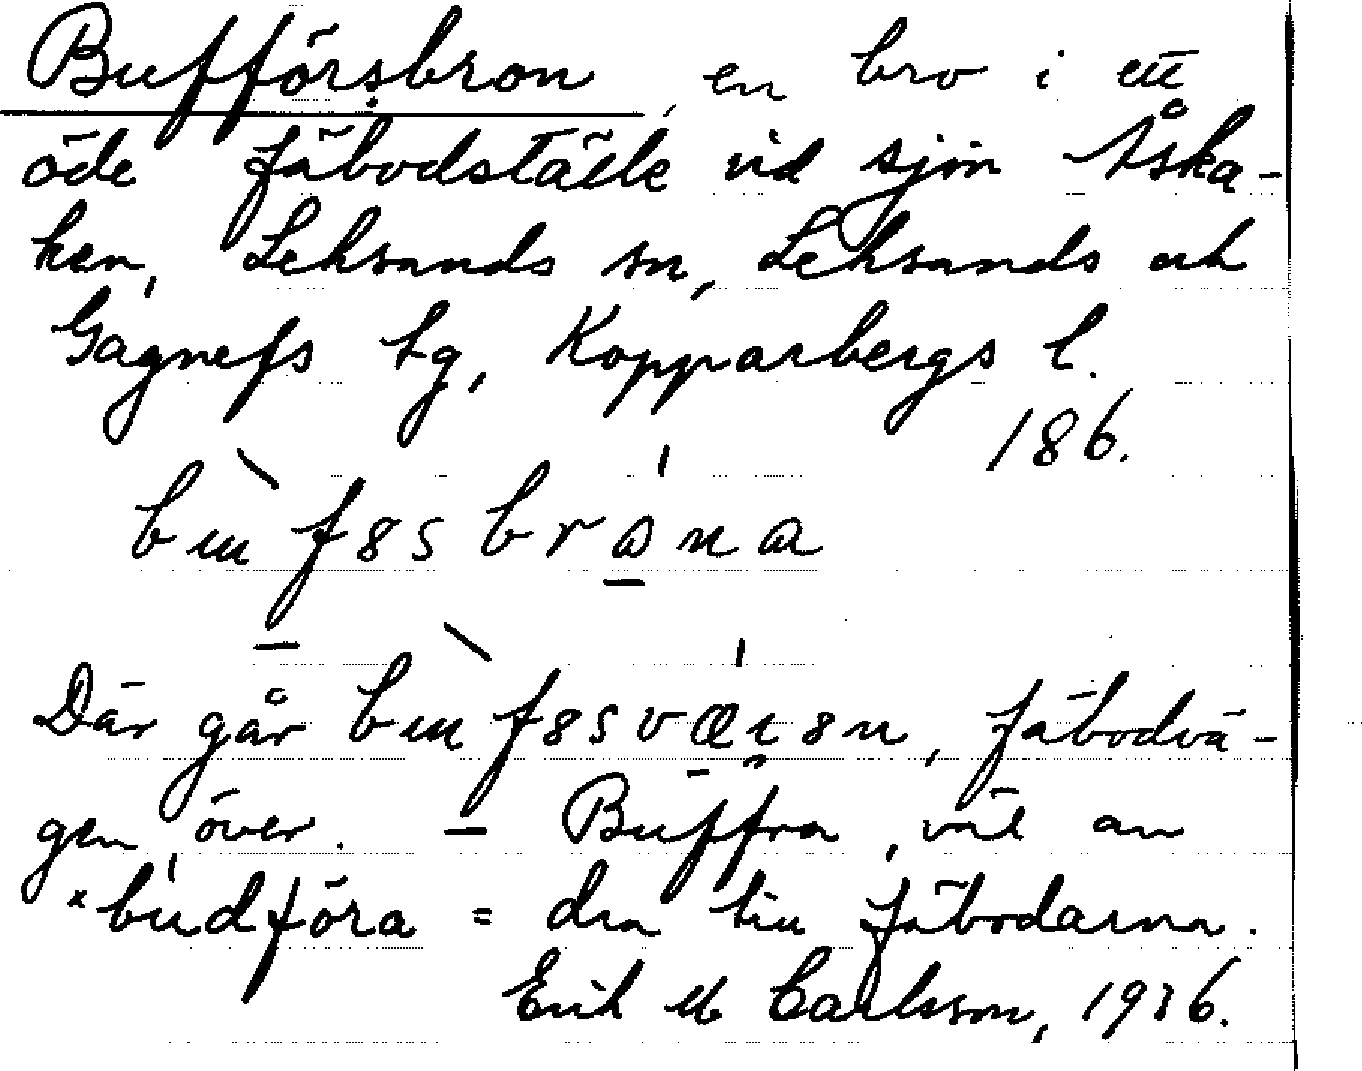 Bufförsbron, en bro i ett
öde fäbodställe vid sjön Åska-
ken, Leksands sn, Leksands och
Gagnefs tg, Kopparbergs l.
186.
Där går fäbodvä-
gen över. – Buffra, väl av
*budföra = dra till fäbodarna.
Erik M Carlsson, 1936.